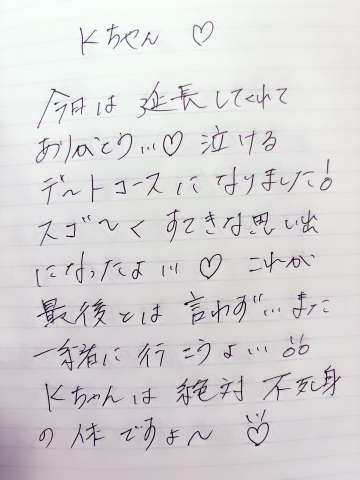 Kちゃん ♡
今日は 延長してくれて
ありがとう…♡ 泣ける
デートコースに なりました!
スゴ〜く すてきな思い出
になったよ… ♡ これが
最後とは 言わず…また
一緒に 行こうよ…
Kちゃんは 絶対 不死身
の 体ですよ〜 ♡